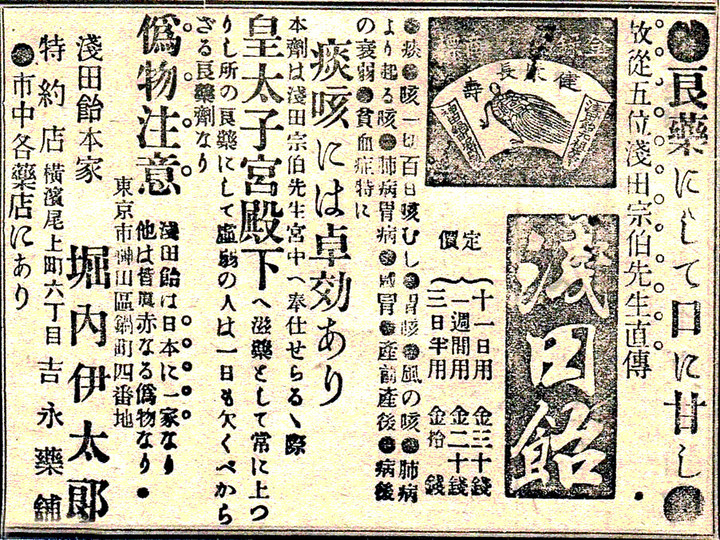 ●良藥にして口に甘し●
故從五位淺田宗伯先生直傳
健康長壽
淺田飴
定價
十一日用 金三十錢
一週間用 金二十錢
三日半用 金拾錢
●痰●咳一切百日咳むし●胃咳●風の咳●肺病
より起る咳●肺病胃病●產前產後●病後
の衰弱●貧血症特に
痰咳には卓効あり
本劑は淺田宗伯先生宮中へ奉仕せらるゝ際
皇太子宮殿下へ滋藥として常に上つ
りし所の良藥にして虛弱の人は一日も欠くべから
ざる良藥劑なり
僞物注意
淺田飴は日本に一家なり
他は皆眞赤なる僞物なり●
東京市神田區鍋町四番地
淺田飴本家 堀內伊太郞
特約店 橫濱尾上町六丁目 吉永藥舖
●市中各藥店にあり